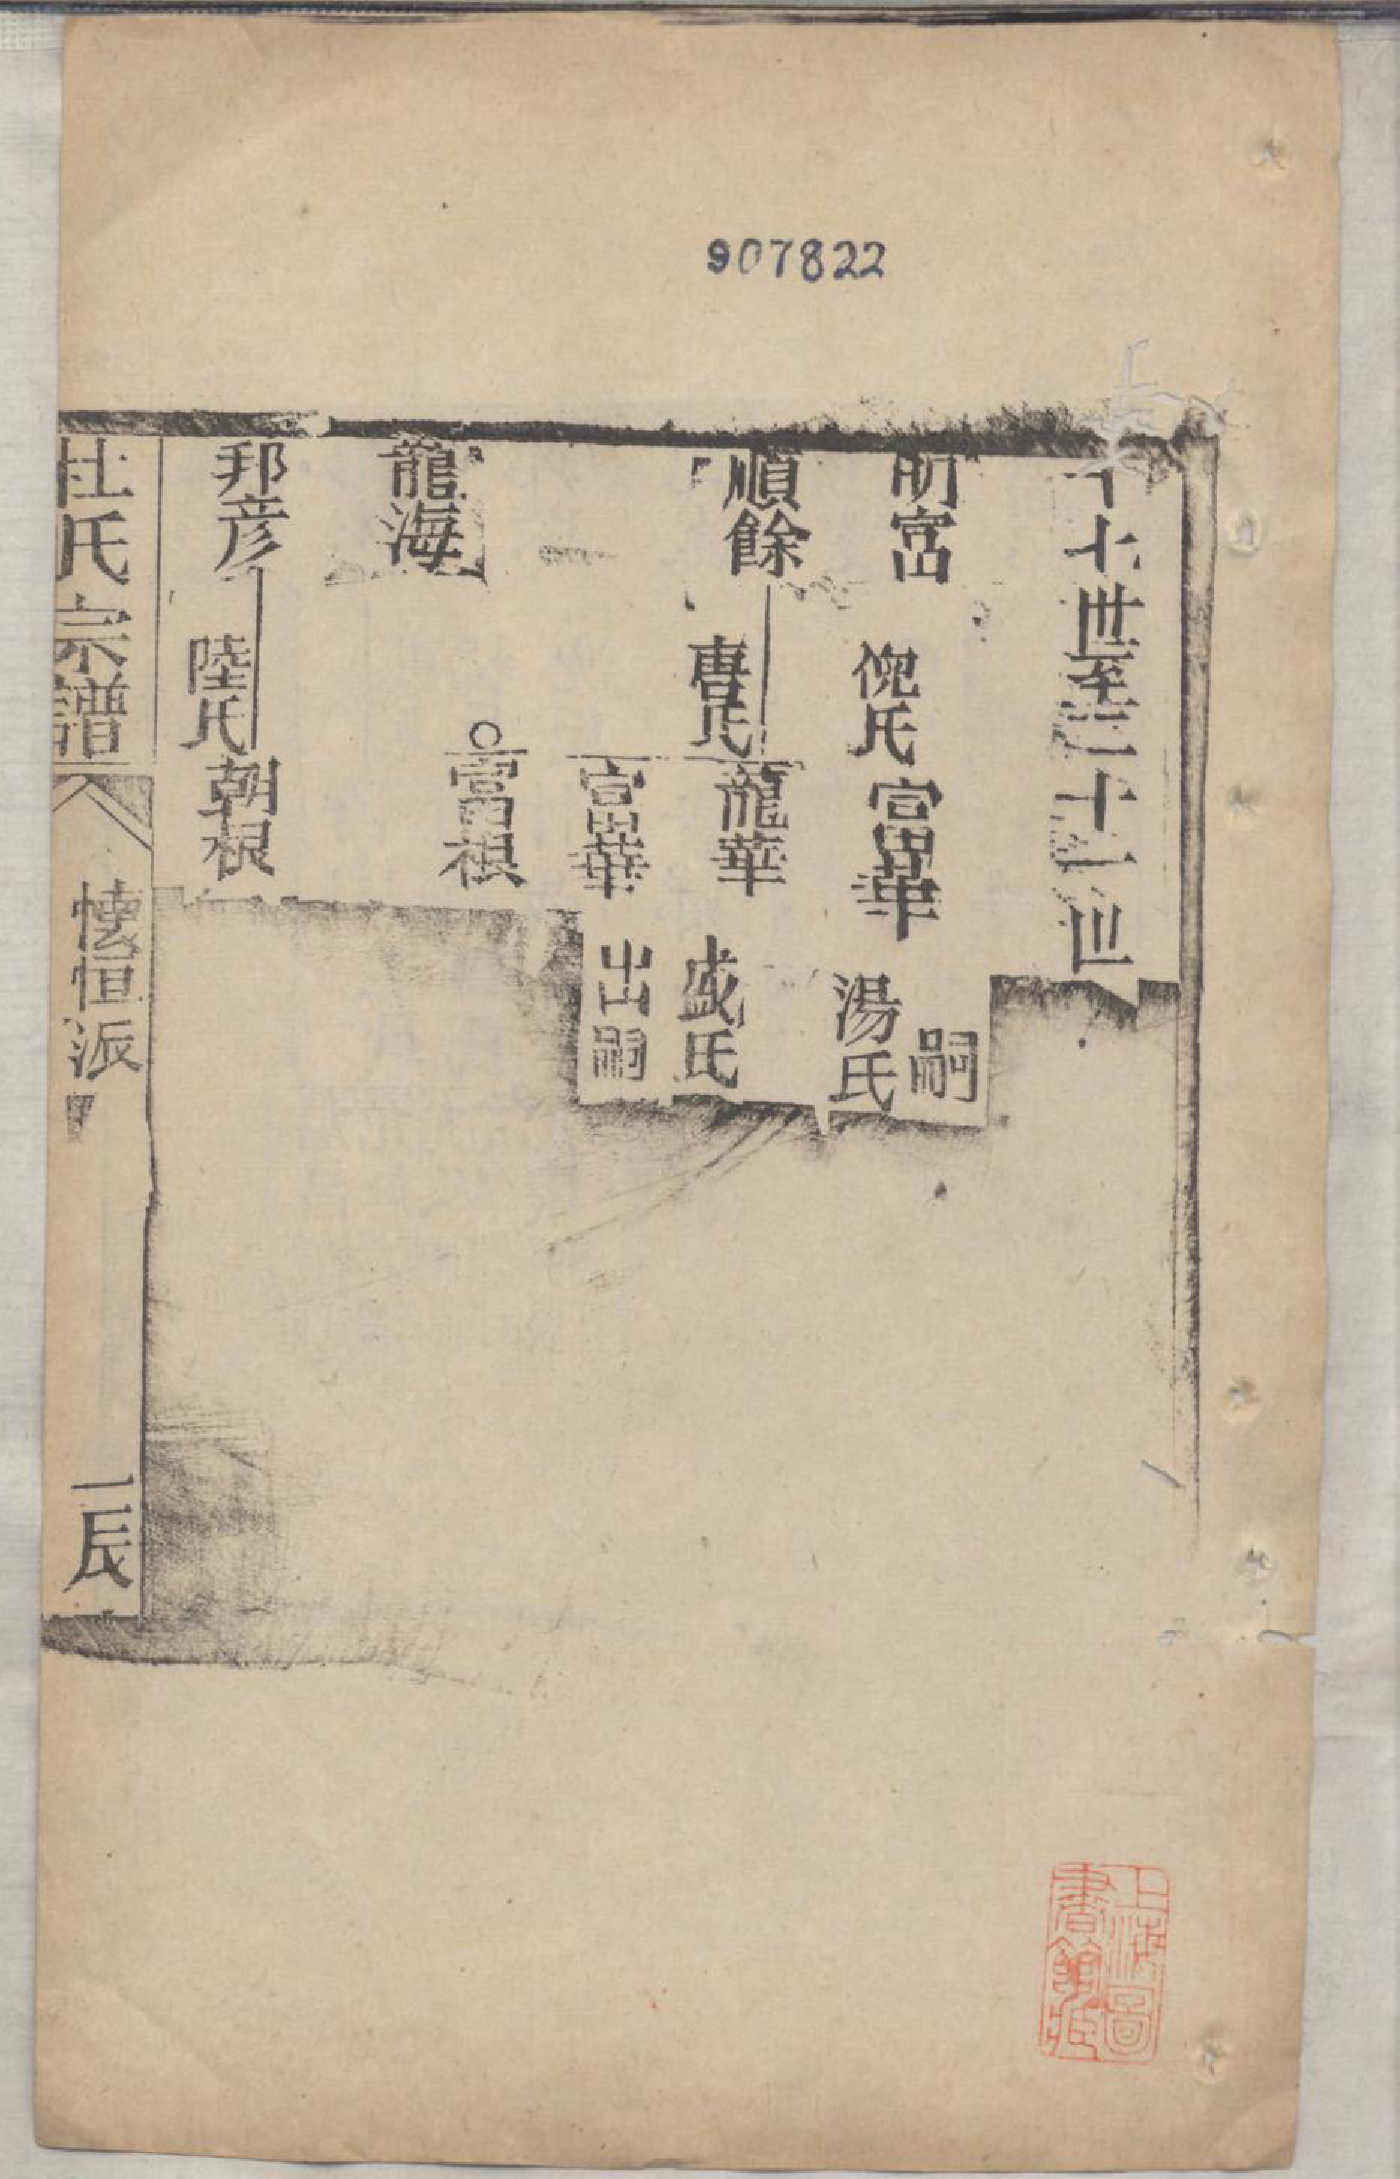 907822
十七世至二十一世
明富
倪氏
富華
嗣
湯氏
順餘
唐氏
龍華
盛氏
富華
出嗣
龍海
富根
邦彦
陸氏
朝根
杜氏宗譜
懷恒派
一辰
上海圖
書館藏